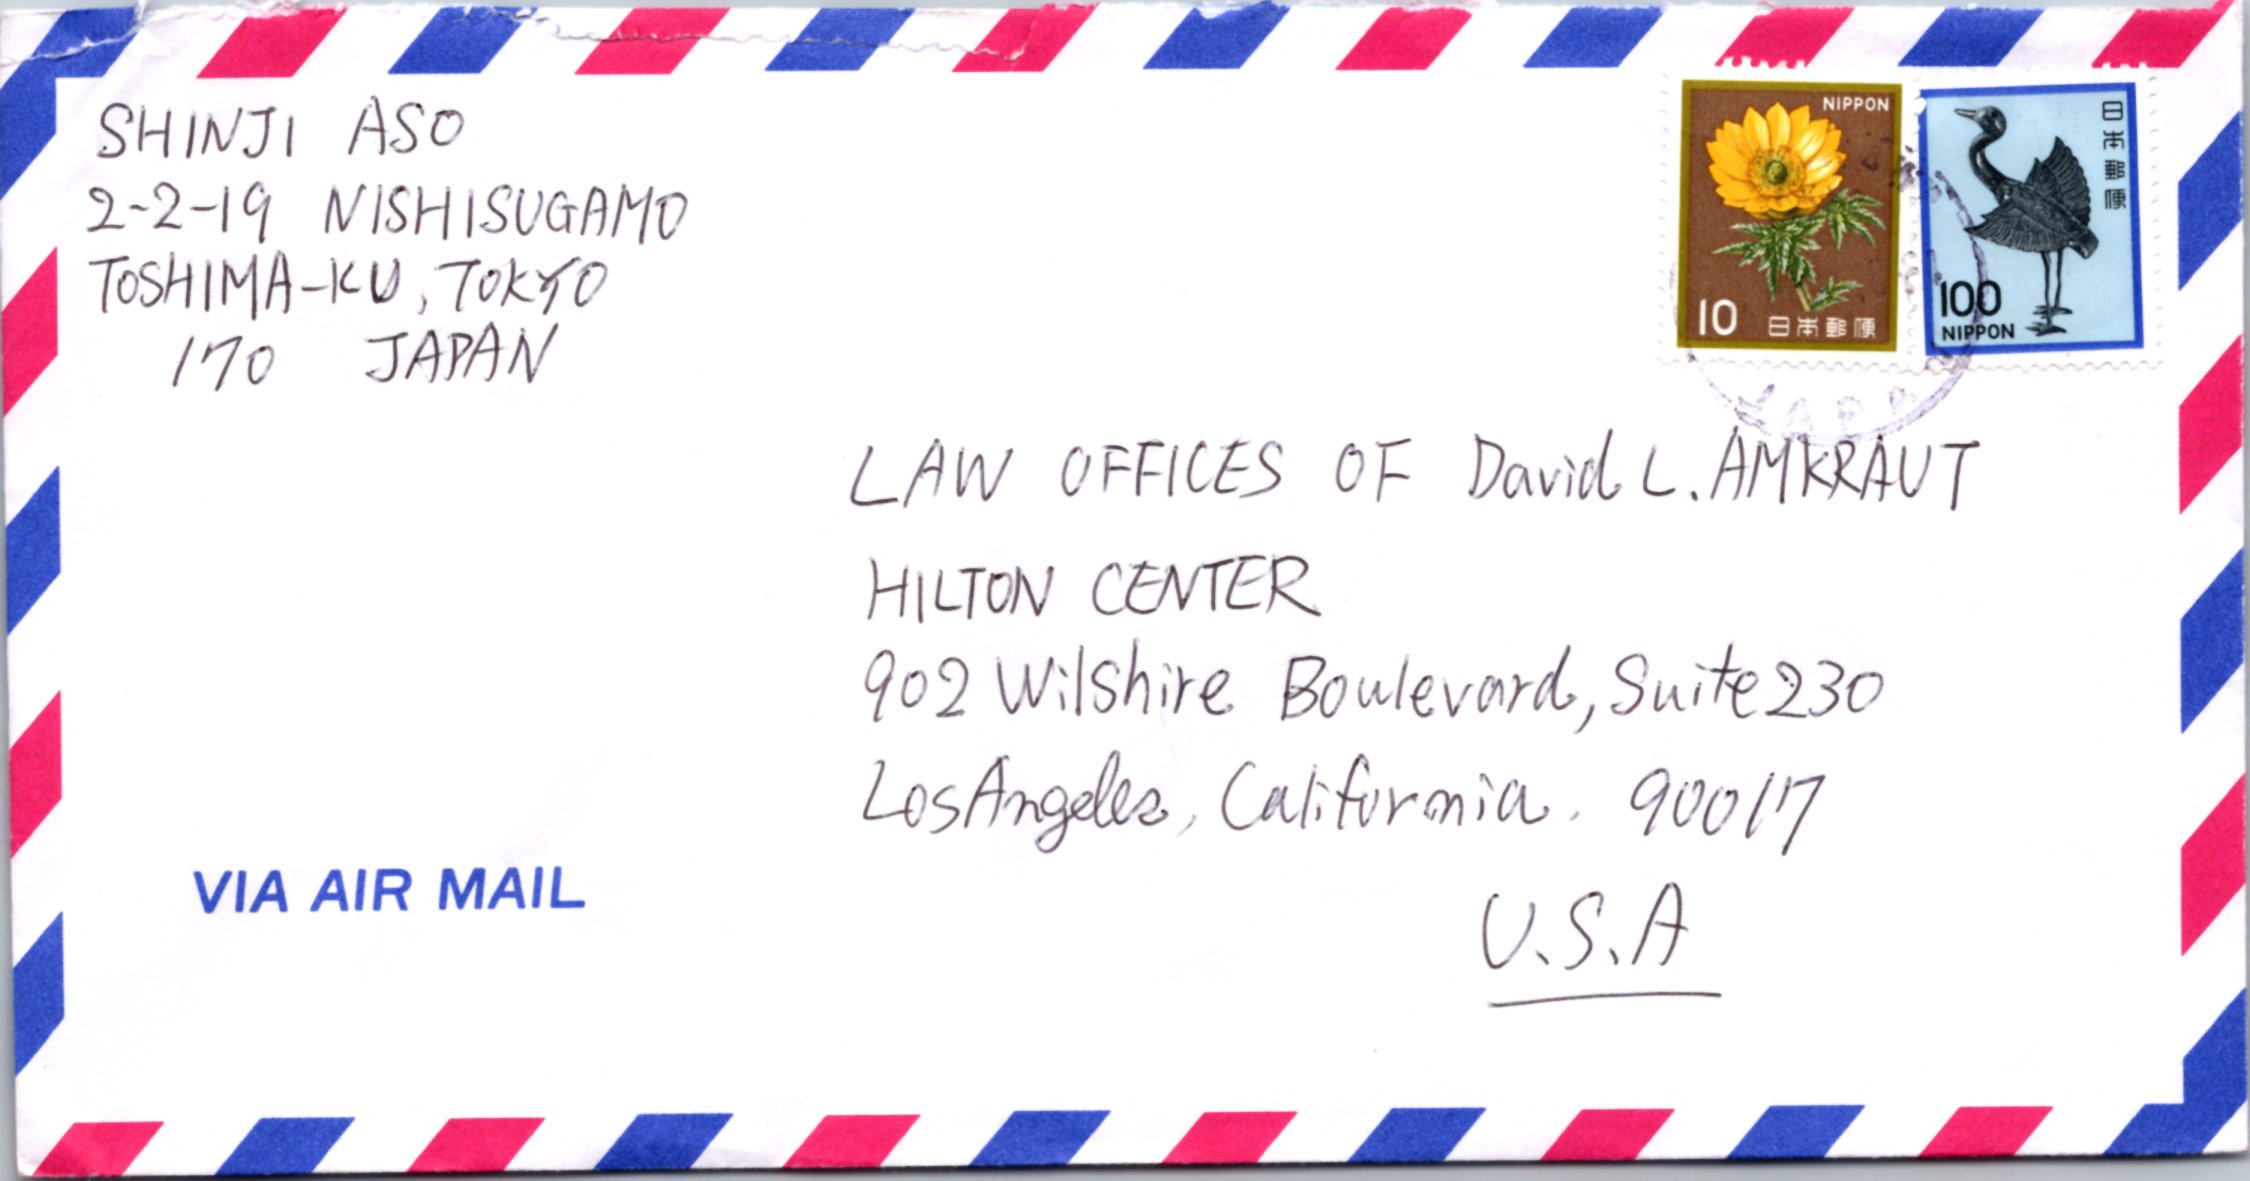 SHINJI ASO
2-2-19 NISHISUGAMO
TOSHIMA-KU, TOKYO
170 JAPAN
NIPPON
10 日本郵便
日本郵便
100
NIPPON
LAW OFFICES OF David L. AMKRAUT
HILTON CENTER
902 Wilshire Boulevard, Suite 230
Los Angeles, California. 90017
U.S.A
VIA AIR MAIL